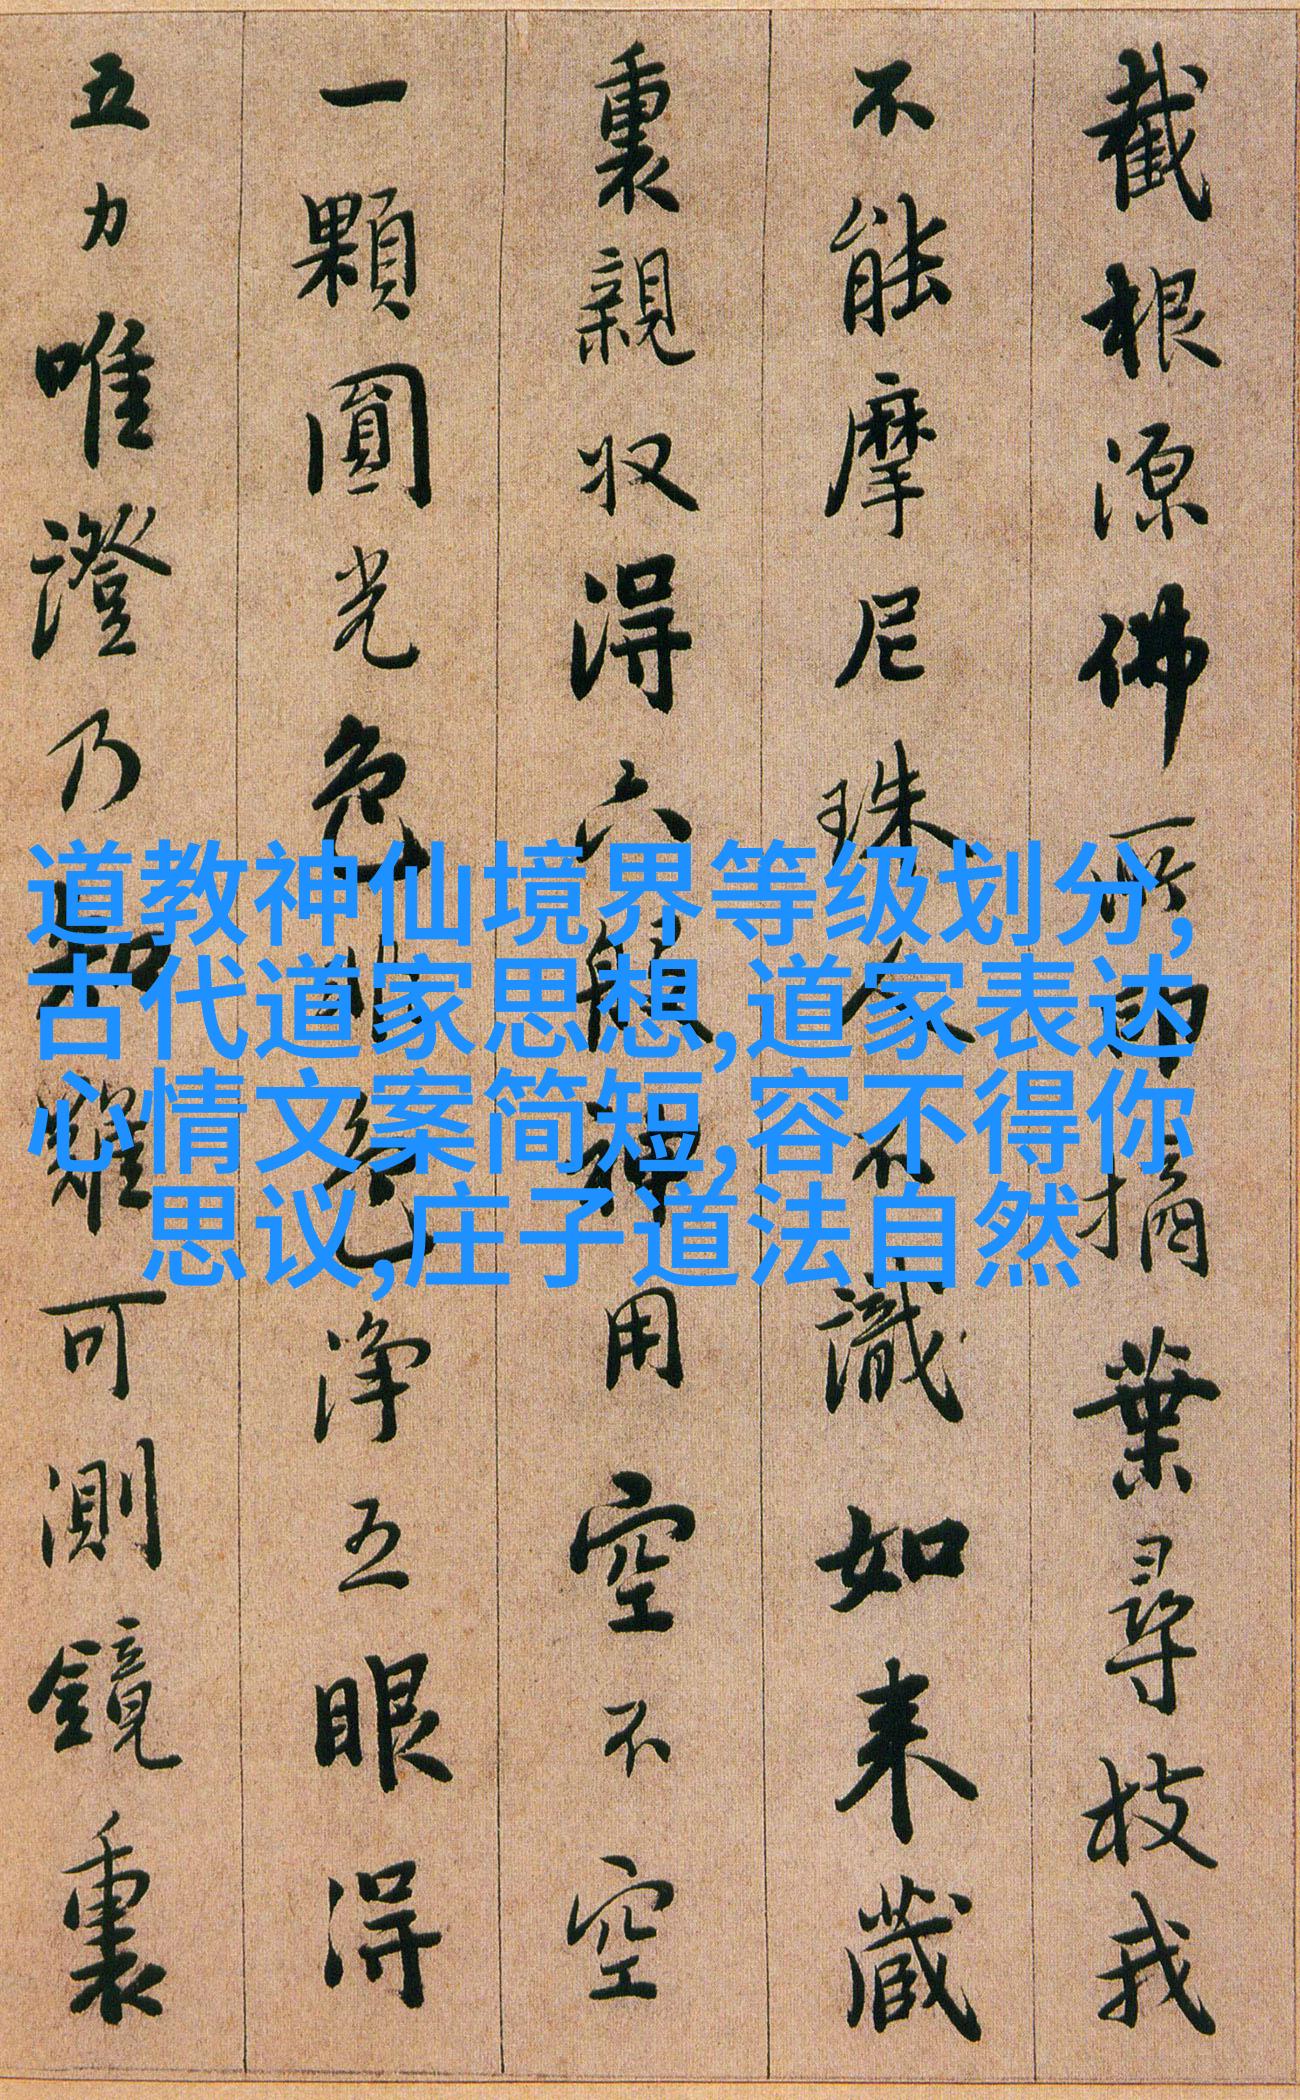 截根源佛所印摘葉尋枝我
不能摩尼珠人不識如来藏
裏親収得六般神用空不空
一顆圓光色非色淨五眼得
五力唯證乃知難可測鏡裏
道教神仙境界等级划分,
古代道家思想,道家表达
心情文案简短,容不得你
思议,庄子道法自然